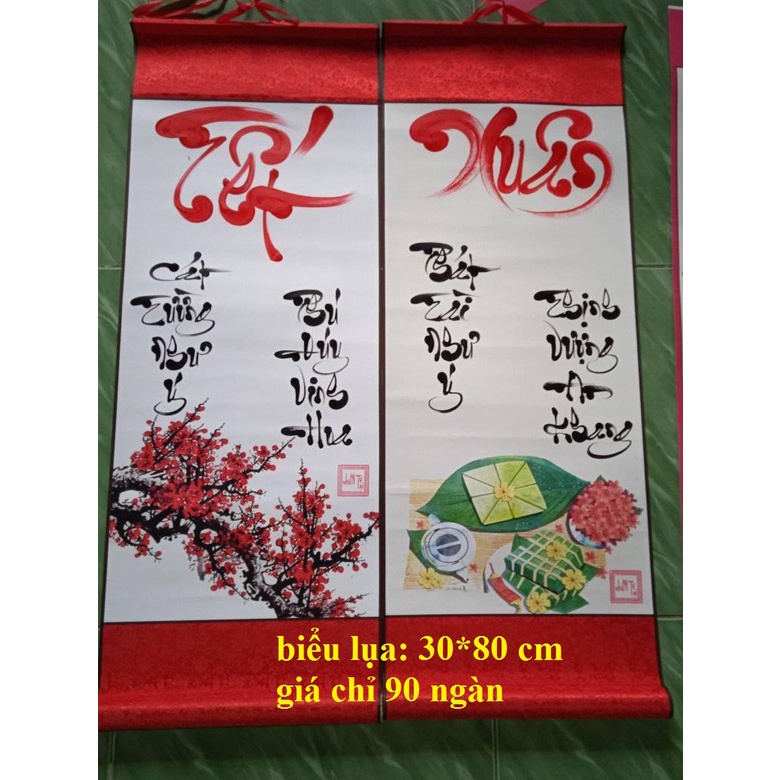 Tết
Cát
Tường
Như
Ý
Phú
Quý
Vinh
Hoa
Xuân
Phát
Tài
Như
Ý
Thịnh
Vượng
An
Khang
biểu lụa: 30*80 cm
giá chỉ 90 ngàn